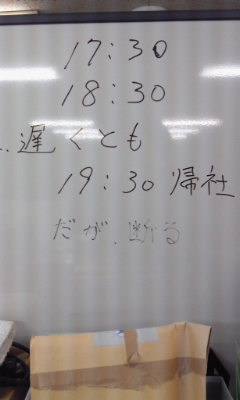 17:30
18:30
遅くとも
19:30 帰社
だが、断る